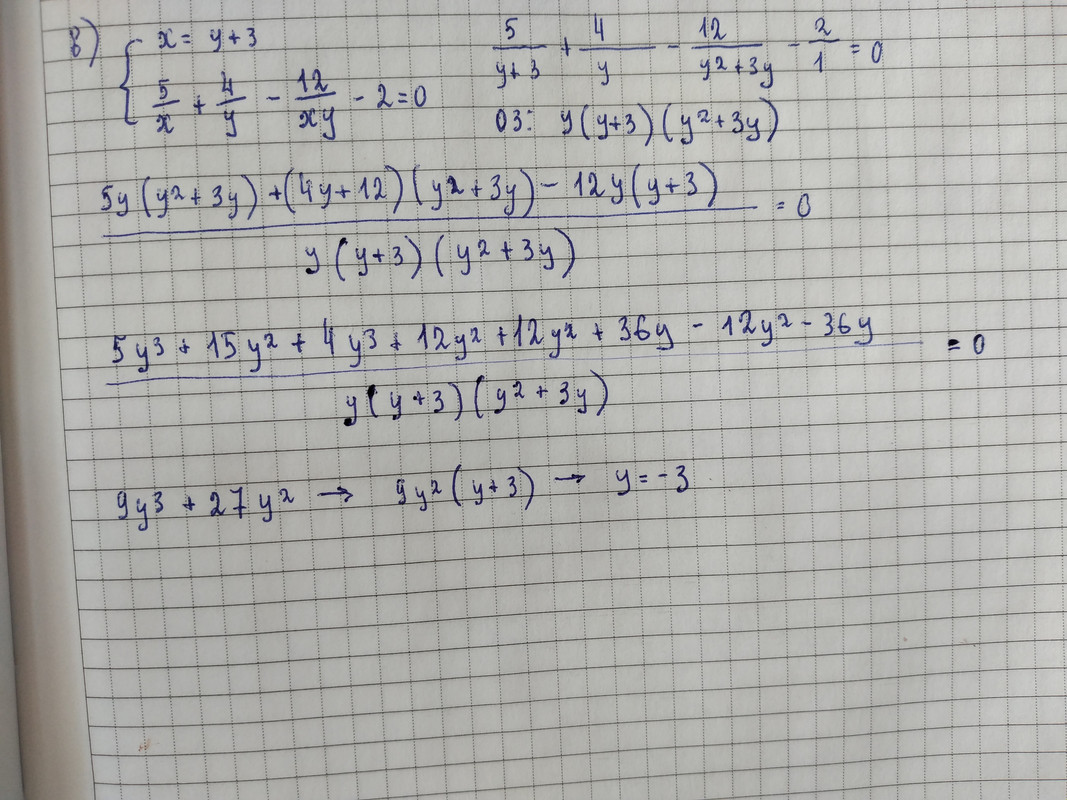 в) { x = y+3
5/x + 4/y - 12/xy - 2 = 0
5/(y+3) + 4/y - 12/(y²+3y) - 2/1 = 0
ОЗ: y(y+3)(y²+3y)
(5y(y²+3y)+(4y+12)(y²+3y) - 12y(y+3))/(y(y+3)(y²+3y)) = 0
(5y³ + 15y² + 4y³ + 12y² + 12y² + 36y - 12y² - 36y)/(y(y+3)(y²+3y)) = 0
9y³ + 27y² → 9y²(y+3) → y = -3